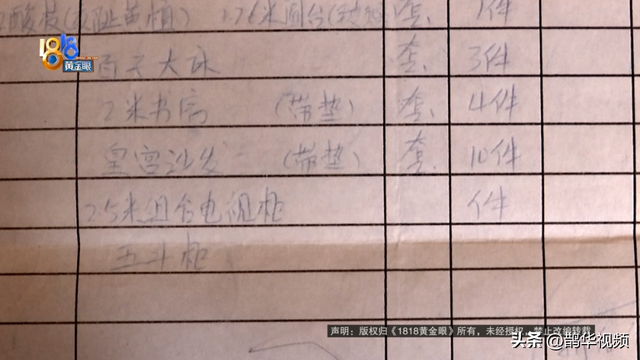 酸枝(交趾黄檀) 1.76米圆台 套 1件
1818
黄金眼
百子大床 套 3件
2米书房 (带垫) 套 4件
皇宫沙发 (带垫) 套 10件
2.5米组合电视柜 件
五斗柜
声明:版权归《1818黄金眼》所有,未经授权,禁止改编转载
头条@鹊华视频